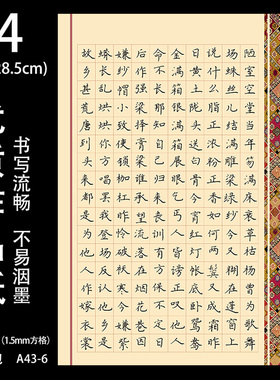 4
28.5cm)
书写流畅 不易洇墨
(1.5mm方格)
A43-6
陋室空堂当年笏满床衰草枯杨曾为歌舞
场蛛丝儿结满雕梁绿纱今又糊在蓬窗上
说什么脂正浓粉正香如何两鬓又成霜昨
日黄土陇头送白骨今宵红灯帐底卧鸳鸯
金满箱银满箱展眼乞丐人皆谤正叹他人
命不长那知自己归来丧训有方保不定日
后作强梁择膏粱谁承望流落在烟花巷因
嫌纱帽小致使锁枷杠昨怜破袄寒今嫌紫
蟒长乱烘烘你方唱罢我登场反认他乡是
故乡甚荒唐到头来都是为他人作嫁衣裳